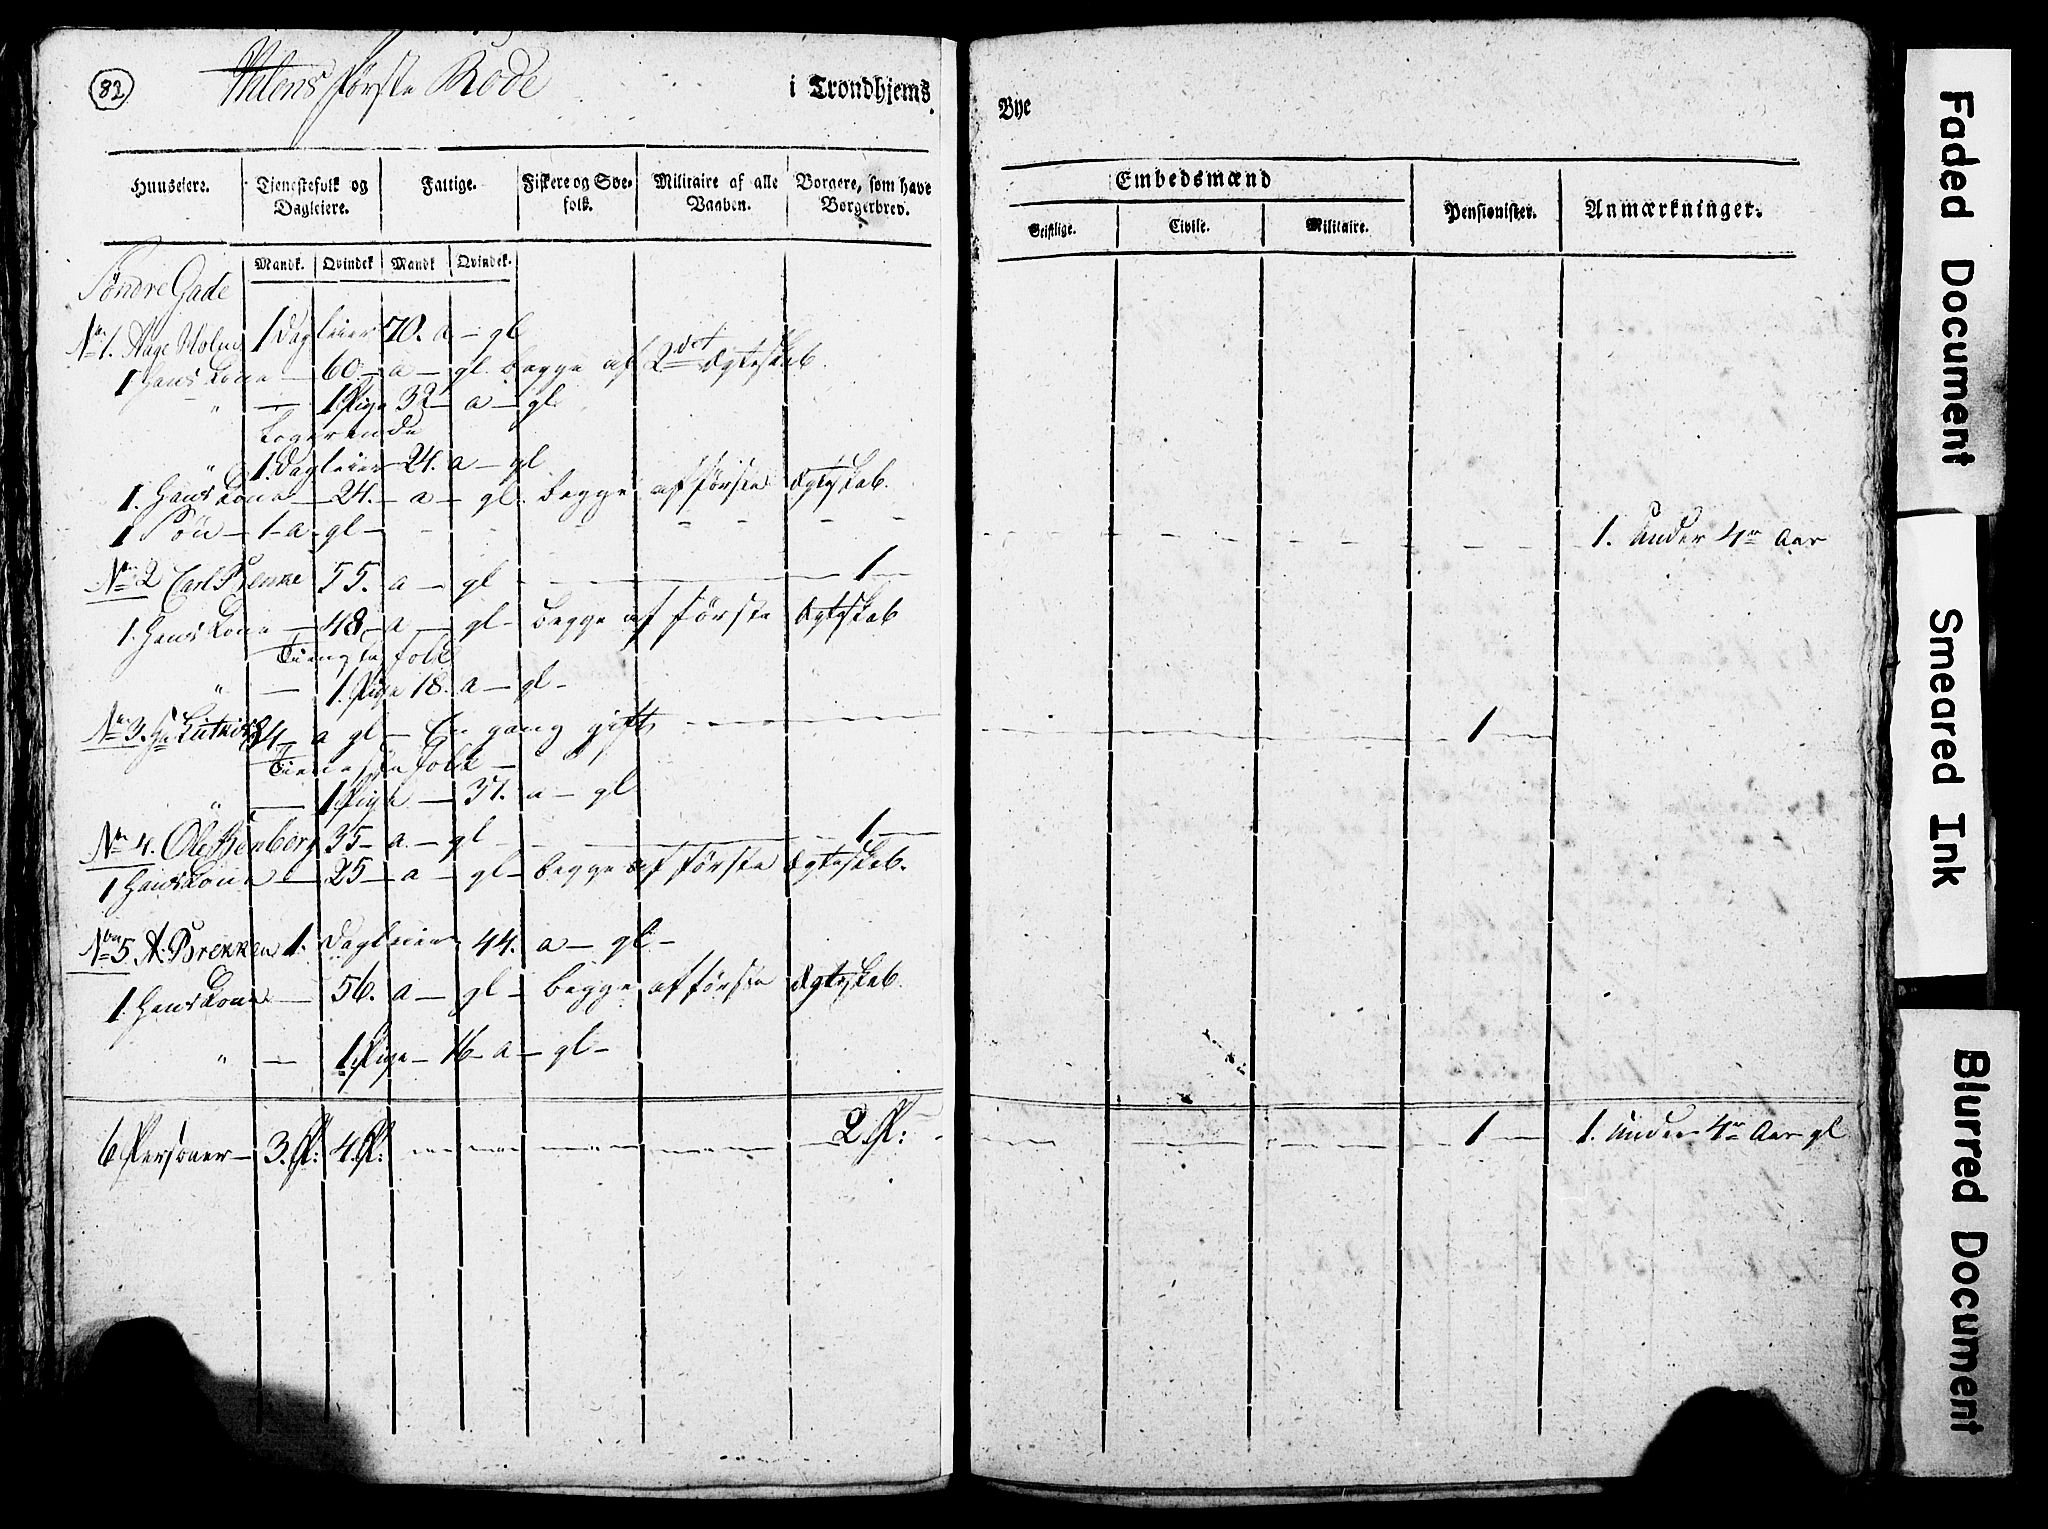 82
Ihlens første Rode
i Trondhjems
Bye
Huuseiere.
Tjenestefolk og Dagleiere.
Fattige.
Fiskere og Søefolk.
Militaire af alle Vaaben.
Borgere, som have Borgerbrev.
Embedsmænd
Geistlige.
Civile.
Militaire.
Pensionister.
Anmærkninger.
Mandk. Qvindek Mandk Qvindek.
Søndre Gade
No 1. Aage Holm 1 Dagleier 70. a - gl
1 Hans Kone - 60 - a - gl. begge af 2det Ægteskab
" - 1 Pige 32 - a - gl
Logerende
" 1. Dagleier 24. a - gl
1. Hans Kone - 24. - a - gl. begge af første Ægteskab.
1 Søn - 1 - a - gl - 1. under 4re Aar
No 2 Carl Brenne 55. a - gl - 1 -
1. Hans Kone - 48 - a - gl - begge af første Ægteskab
Tieneste folk
" - 1. Pige 18. a - gl -
No 3. 84 - a gl - En gang gift - 1 -
Tieneste folk -
" - 1 Pige - 37. a - gl
No 4. Ole Stenborg 35 - a - gl - 1 -
1 Hans Kone - 25 - a - gl - begge af første Ægteskab.
No 5 A. Brekken 1. Dagleier 44. a - gl -
1. Hans Kone - 56. a - gl - begge af første Ægteskab.
" - 1. Pige - 16 - a - gl -
6 Personer - 3. P: 4. P: - 2 P: - 1 - 1. under 4re Aar gl
Faded Document
Smeared Ink
Blurred Document